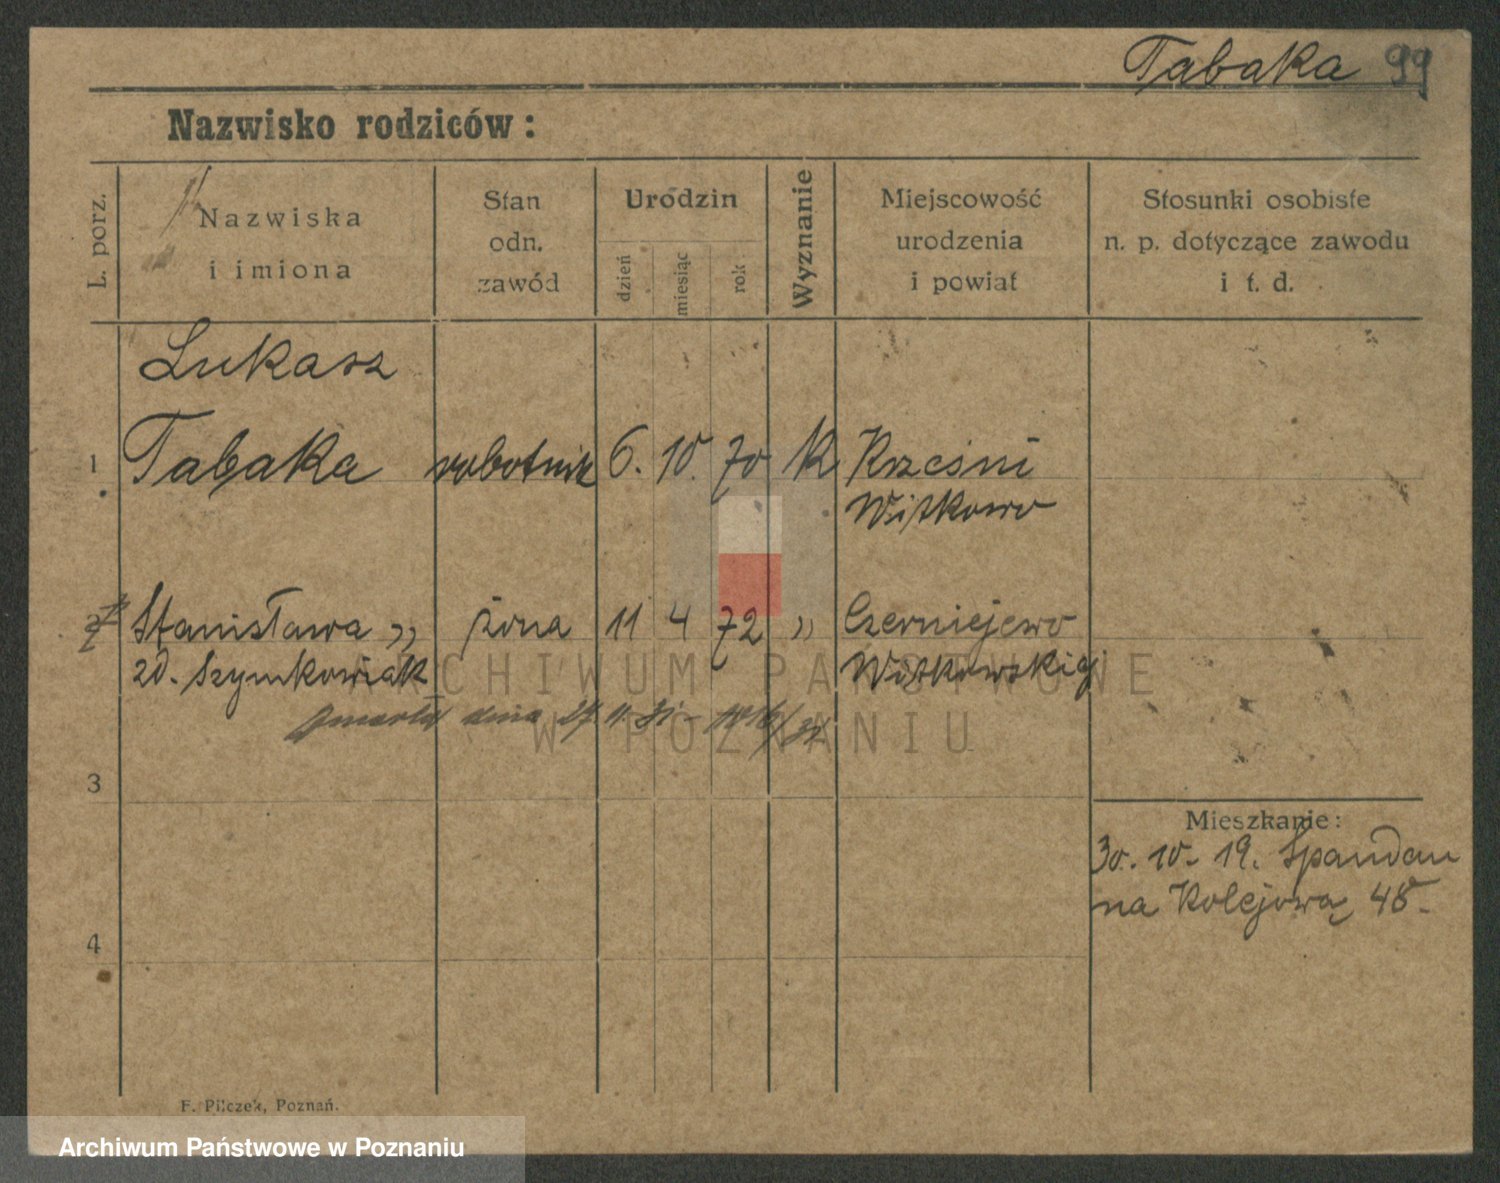 Tabaka 99
Nazwisko rodziców:
L. porz.
Nazwiska
i imiona
Stan
odn.
zawód
Urodzin
dzień
miesiąc
rok
Wyznanie
Miejscowość
urodzenia
i powiat
Stosunki osobiste
n. p. dotyczące zawodu
i t. d.
Lukasz
1 Tabaka robotnik 6. 10. 70 k
Witkowo
2 Stanisława " żona 11 4 72 " Czerniejewo
zd. Szymkowiak Witkowski
dnia 27 11. 31 -
3
Mieszkanie:
30. 10. 19. Spandau
na Kolejową 48-
4
F. Pilczek, Poznań.
ARCHIWUM PAŃSTWOWE
W POZNANIU
Archiwum Państwowe w Poznaniu